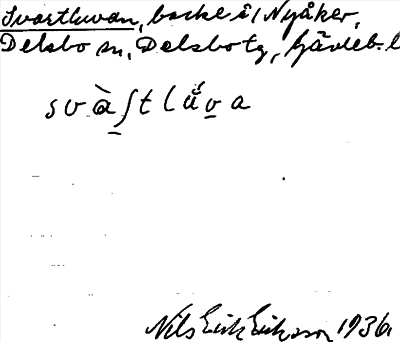 Svartluvan, backe å 1 Nyåker,
Delsbo sn, Delsbo tg, Gävleb. l
svàʃtlů́va
Nils Erik Eriksson 1936